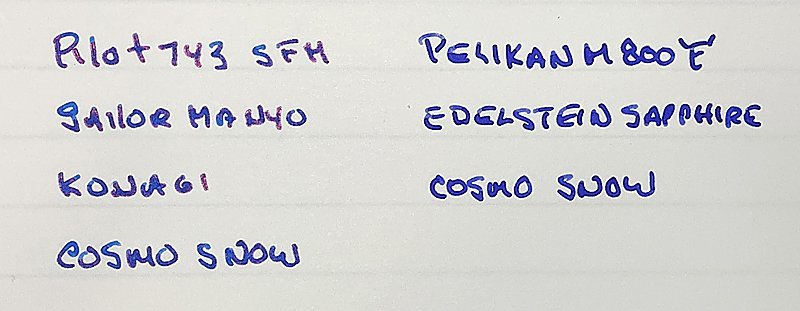 Pilot 743 SFM
SAILOR MANYO
KONAGI
COSMO SNOW
PELIKAN M800 F
EDELSTEIN SAPPHIRE
COSMO SNOW